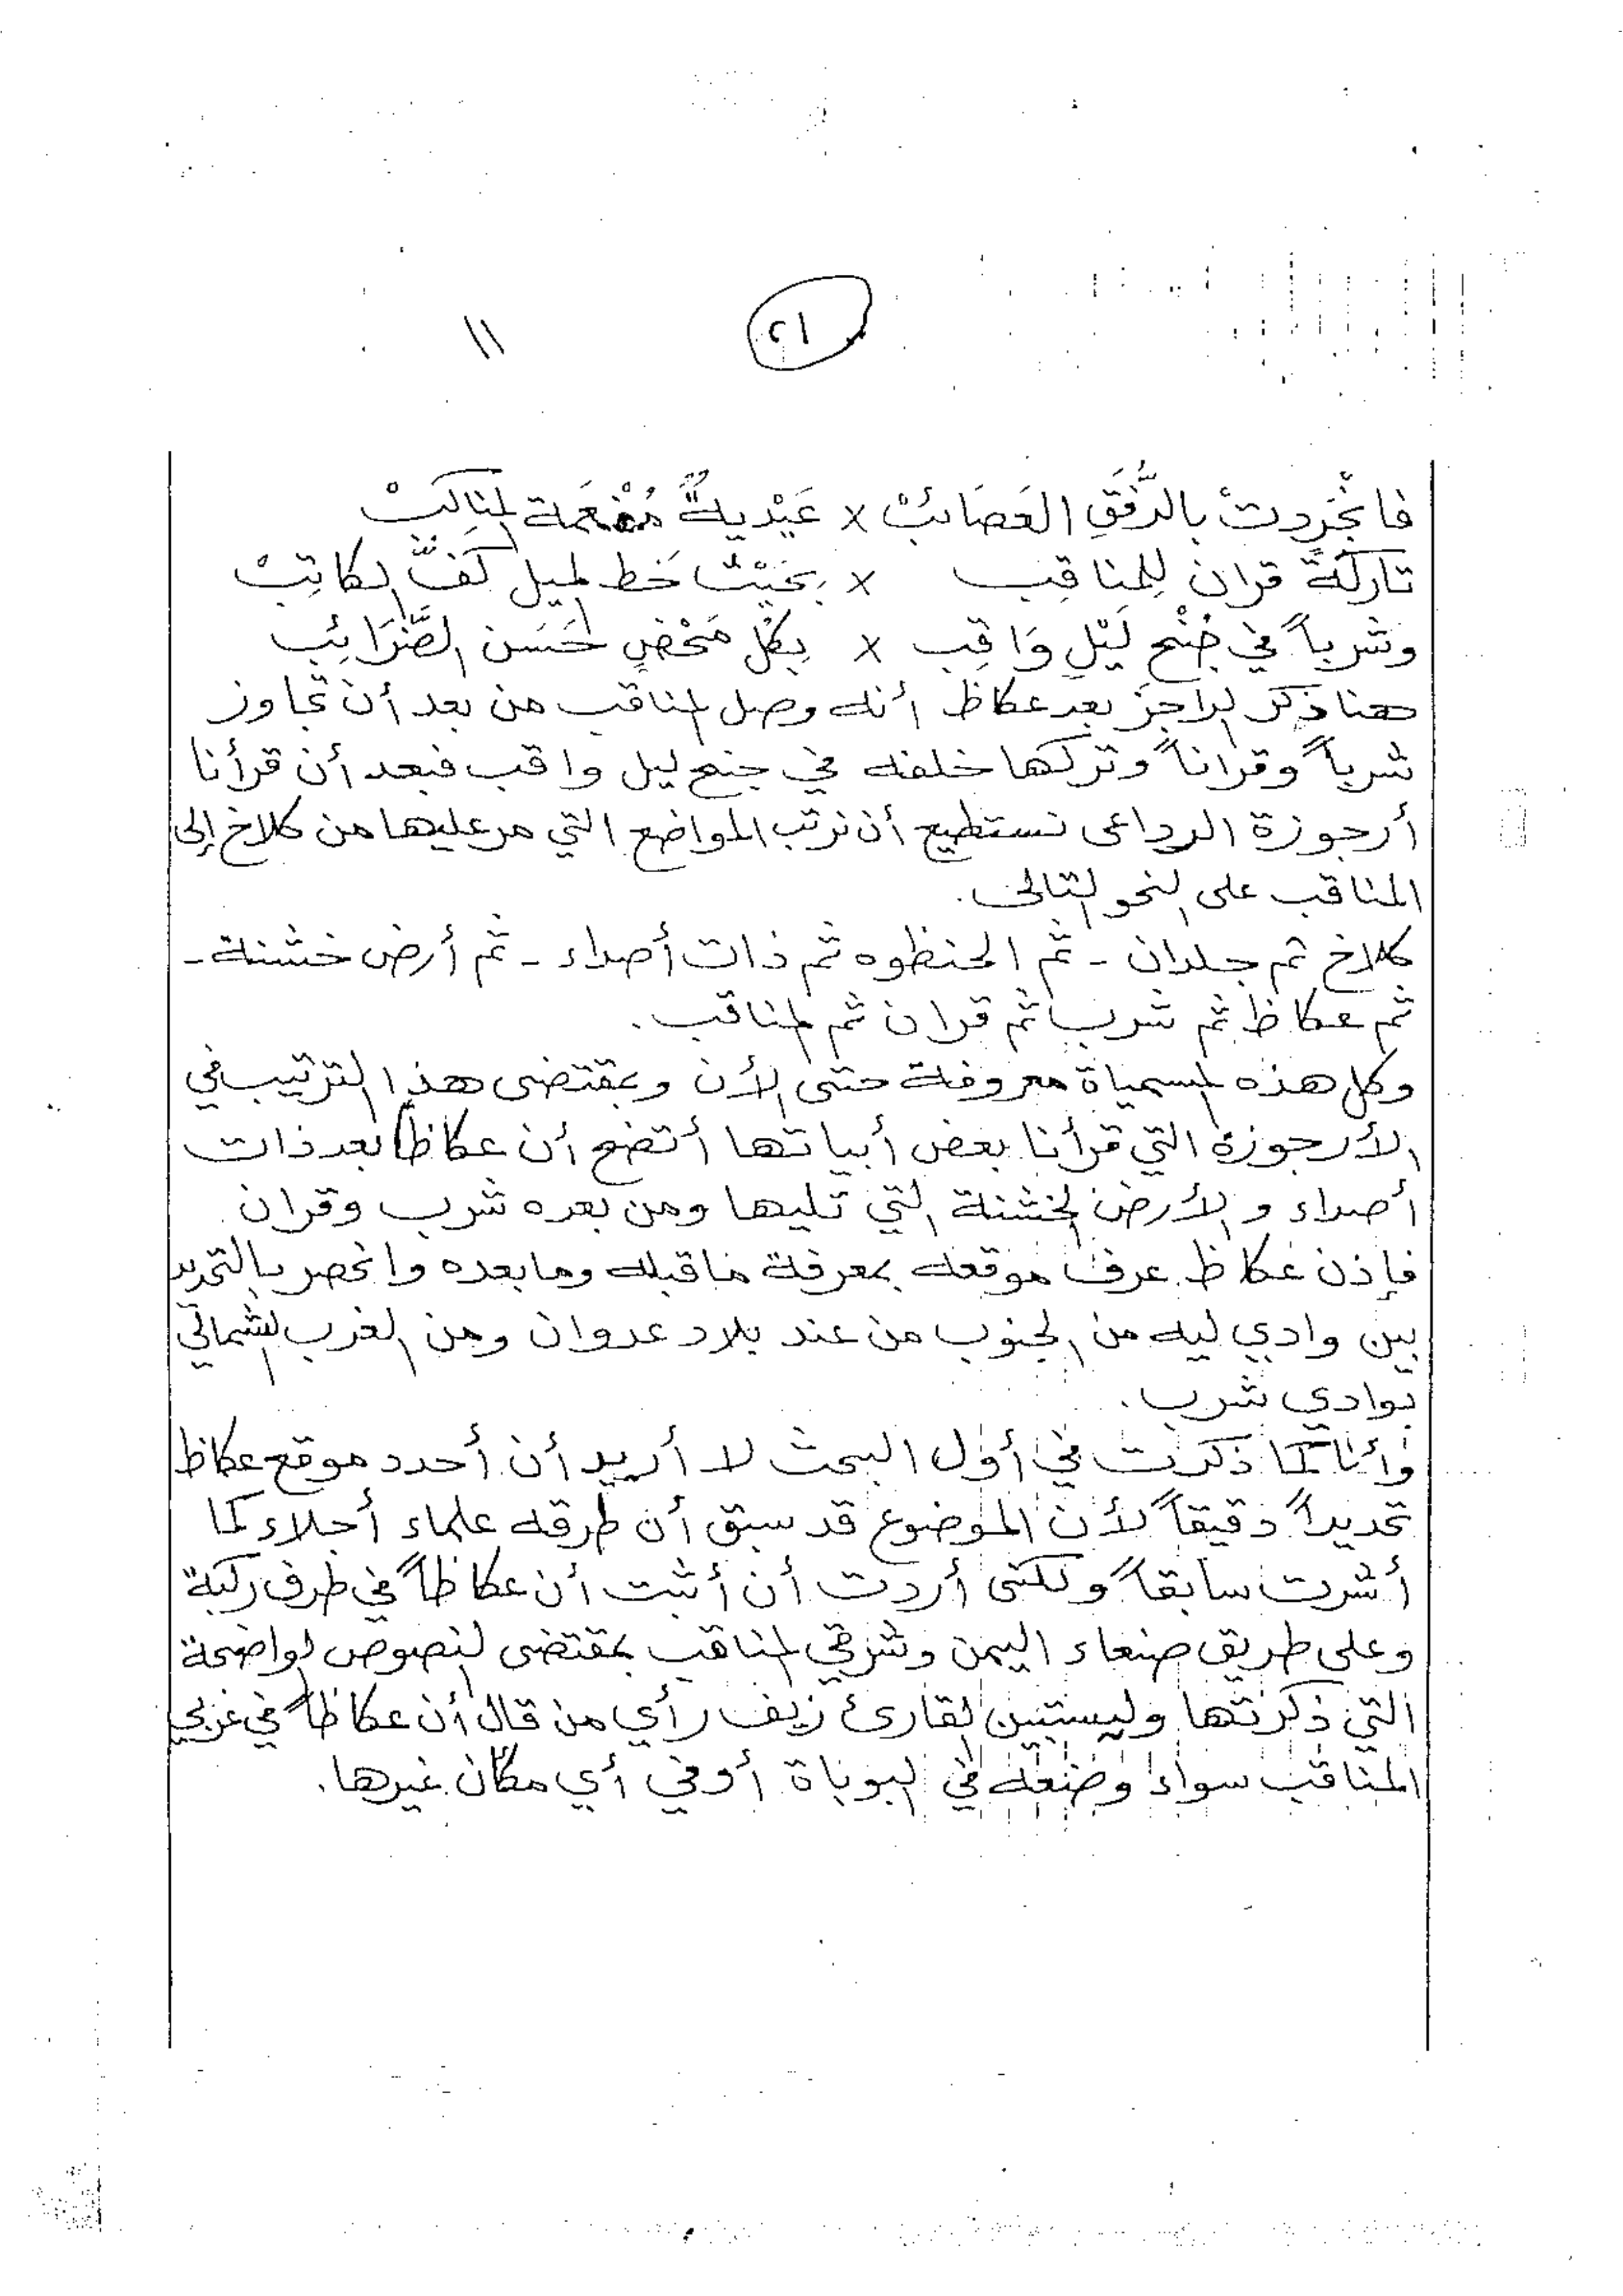 ١٢ ١١
فانجَردتْ بالرَّفَقِ العَصَائبْ × عَيْديةٌ مُفْعَمة المناكبْ
تاركةً قران للِمناقِب × بحَيْثُ خَط الميل كَفُّ الكاتِبْ
وشرباً في جُنْحِ لَيْلِ وَاقِب × بِكُلِّ مَحْضٍ حَسَن الضَّرَائِب
هنا ذكر الراجز بعد عكاظ أنه وصل المناقب من بعد أن تجاوز
شرباً وقراناً وتركها خلفه في جنح ليل واقب فبعد أن قرأنا
أرجوزة الرداعى نستطيع أن نرتب المواضع التي مر عليها من كلاخ إلى
المناقب على النحو التالى.
كلاخ ثم جلدان - ثم الحنظوه ثم ذات أصداء - ثم أرض خشنة -
ثم عكاظ ثم شرب ثم قران ثم المناقب.
وكل هذه المسمياة معروفة حتى الأن وبمقتضى هذا الترتيب في
الأرجوزة التي قرأنا بعض أبياتها أتضح أن عكاظاً بعد ذات
أصداء والأرض الخشنة التي تليها ومن بعده شرب وقران
فإذن عكاظ عرف موقعه بمعرفة ماقبله ومابعده وانحصر بالتحديد
بين وادي ليه من الجنوب من عند بلاد عدوان ومن الغرب الشمالي
بوادي شرب.
وأنا كما ذكرت في أول البحث لا أريد أن أحدد موقع عكاظ
تحديداً دقيقاً لأن الموضوع قد سبق أن طرقه علماء أجلاء كما
أشرت سابقاً ولكنى أردت أن أثبت أن عكاظاً في طرف ركبة
وعلى طريق صنعاء اليمن وشرقي المناقب بمقتضى النصوص الواضحة
التي ذكرتها وليستبين لقارئ زيف رأي من قال أن عكاظاً في غربي
المناقب سواء وضعه في البوباة أو في أي مكان غيرها.